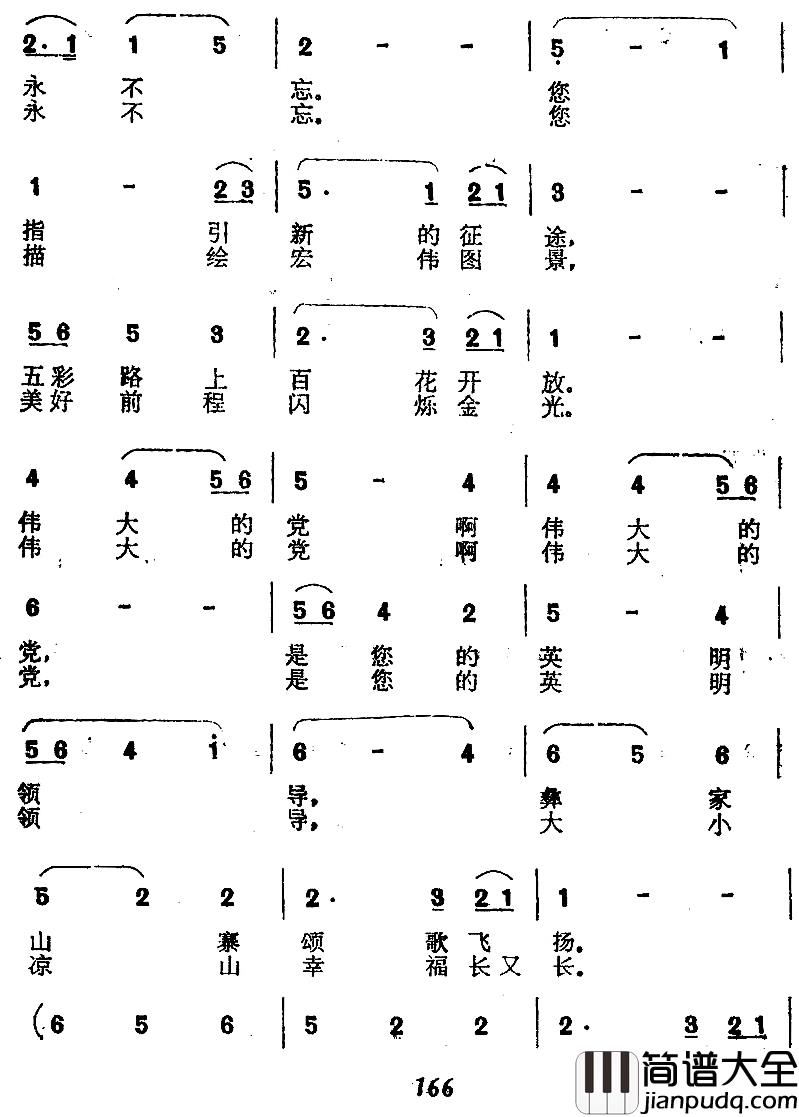 2· 1 1 5 | 2 - - | 5 - 1 |
永 不 忘。 您
永 不 忘。 您
1 - 2 3 | 5· 1 2 1 | 3 - - |
指 引 新 的 征 途,
描 绘 宏 伟 图 景,
5 6 5 3 | 2· 3 2 1 | 1 - - |
五 彩 路 上 百 花 开 放。
美 好 前 程 闪 烁 金 光。
4 4 5 6 | 5 - 4 | 4 4 5 6 |
伟 大 的 党 啊 伟 大 的
伟 大 的 党 啊 伟 大 的
6 - - | 5 6 4 2 | 5 - 4 |
党, 是 您 的 英 明
党, 是 您 的 英 明
5 6 4 i | 6 - 4 | 6 5 6 |
领 导, 彝 家
领 导, 大 小
5 2 2 | 2· 3 2 1 | 1 - - |
山 寨 颂 歌 飞 扬。
凉 山 幸 福 长 又 长。
(6 5 6 | 5 2 2 | 2· 3 2 1 |
166
简谱大全
jianpudq.com